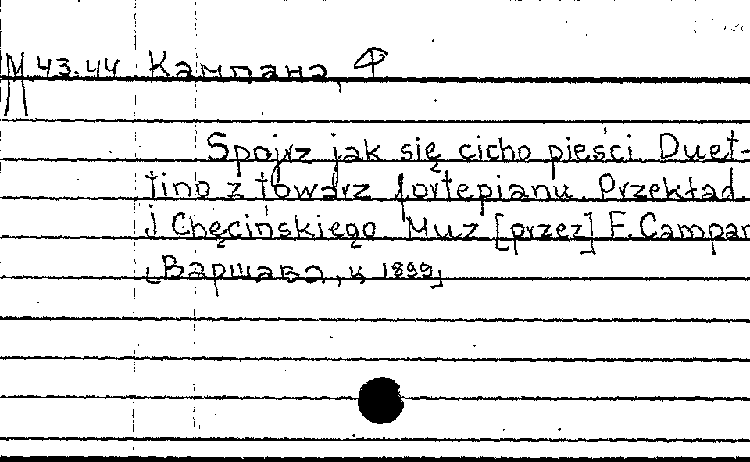 М 43.44 Кампана, Ф
Spojrz jak się cicho pieści. Duet-
tino z towarz fortepianu. Przekład
J Chęcińskiego Muz [przez] F. Campan
[Варшава, ц 1899]